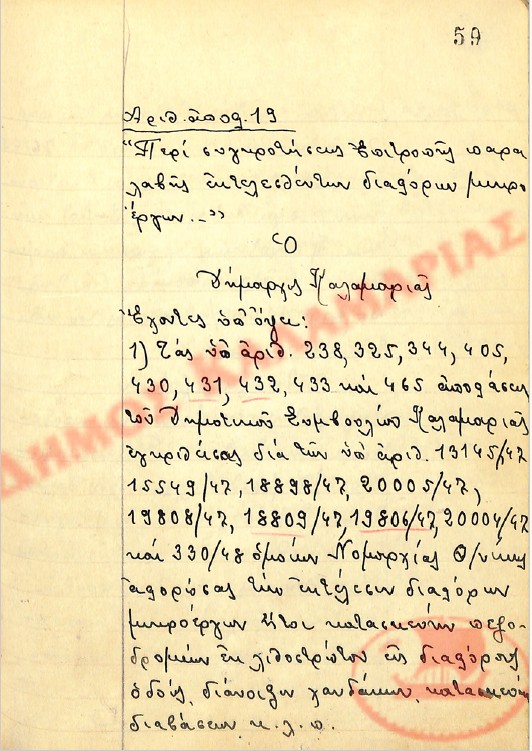 59
Ἀριθ. ἀποφ. 19
"Περί συγκροτήσεως Ἐπιτροπῆς παρα
λαβῆς ἐκτελεσθέντων διαφόρων μικρο
έργων.-"
Ὁ
Δήμαρχος Καλαμαριᾶς
Ἔχοντες ὑπ' ὄψει:
1) Τάς ὑπ' ἀριθ. 238, 325, 344, 405,
430, 431, 432, 433 καί 465 ἀποφάσεις
τοῦ Δημοτικοῦ Συμβουλίου Καλαμαριᾶς
ἐγκριθείσας διά τῶν ὑπ' ἀριθ. 13145/47
15549/47, 18898/47, 20005/47,
19808/47, 18809/47, 19806/47, 20004/47
καί 330/48 ὁμοίων Νομαρχίας Θ/νίκης
ἀφορώσας τήν ἐκτέλεσιν διαφόρων
μικροέργων ἤτοι κατασκευήν πεζο-
δρομίων ἐκ λιθοστρώτου εἰς διαφόρους
ὁδούς, διάνοιξιν χανδάκων, κατασκευή
διαβάσεων κ.λ.π.
ΔΗΜΟΣ ΚΑΛΑΜΑΡΙΑΣ